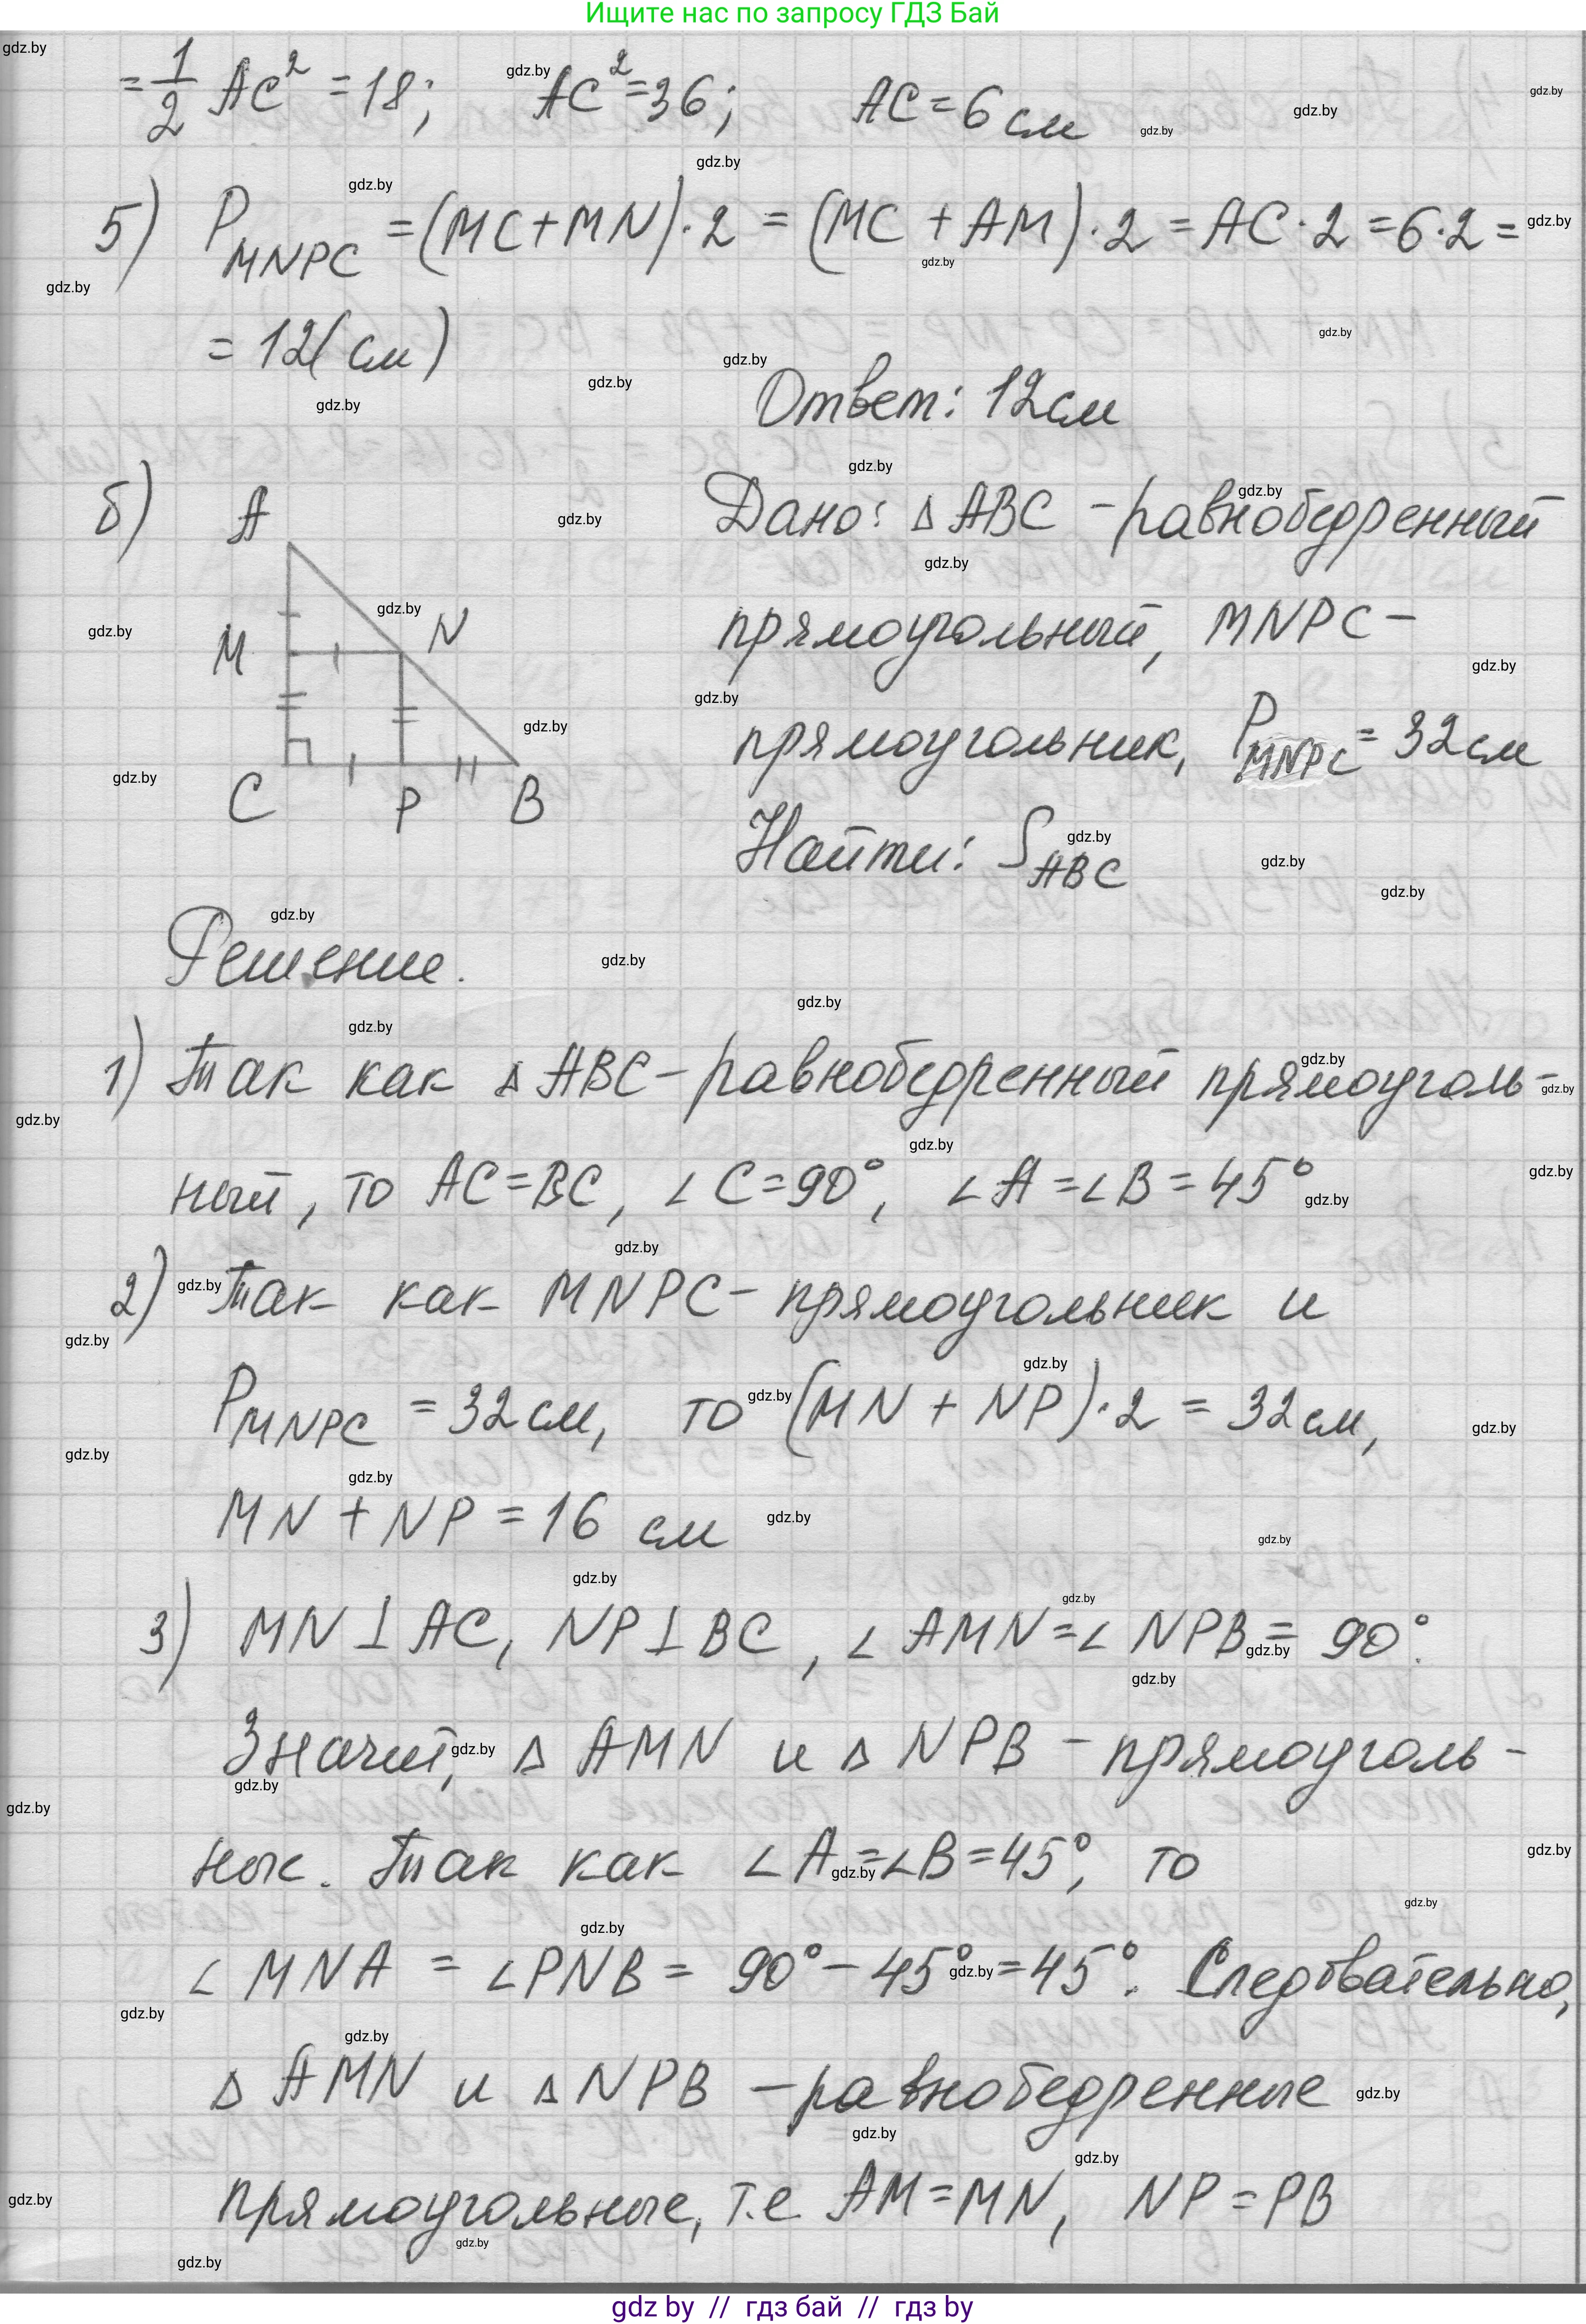 Ищите нас по запросу ГДЗ Бай
= 1/2 AC² = 18; AC² = 36; AC = 6 см
5) P_MNPC = (MC + MN)·2 = (MC + AM)·2 = AC·2 = 6·2 =
= 12 (см)
Ответ: 12 см
б) A M N C P B
Дано: Δ ABC - равнобедренный
прямоугольный, MNPC -
прямоугольник, P_MNPC = 32 см
Найти: S_ABC
Решение.
1) Так как Δ ABC - равнобедренный прямоуголь-
ный, то AC = BC, ∠C = 90°, ∠A = ∠B = 45°
2) Так как MNPC - прямоугольник и
P_MNPC = 32 см, то (MN + NP)·2 = 32 см,
MN + NP = 16 см
3) MN ⊥ AC, NP ⊥ BC, ∠AMN = ∠NPB = 90°.
Значит, Δ AMN и Δ NPB - прямоуголь-
ные. Так как ∠A = ∠B = 45°, то
∠MNA = ∠PNB = 90° - 45° = 45°. Следовательно,
Δ AMN и Δ NPB - равнобедренные
прямоугольные, т.е AM = MN, NP = PB
gdz by // гдз бай // гдз by